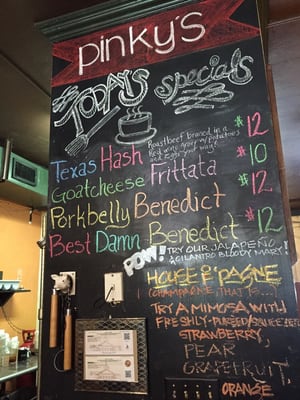 Pinky's
TODAY'S
Specials
Texas Hash
Roastbeef braised in a
Red wine gravy w/ potatoes
and eggs your way!
$12
Goatcheese Frittata
$10
Porkbelly Benedict
$12
Best Damn Benedict
$12
POW!
TRY OUR JALAPEÑO
& CILANTRO BLOODY MARY!
HOUSE P'PAGNE
(CHAMPAGNE, THAT IS....)
TRY A MIMOSA WITH
FRESHLY-PUREED/SQUEEZED
STRAWBERRY
PEAR
GRAPEFRUIT
ORANGE